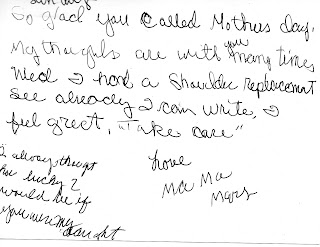 So glad you Called Mothers day.
My thoughts are with you many times
Wed I had a Shoulder replacement
See already I can write, I
feel great, "Take care"
Love
Ma Ma
Mary
I always thought
how lucky I
would be if
you were my daught